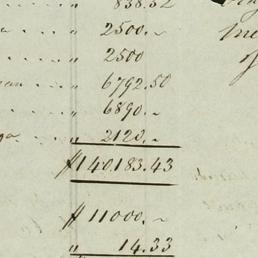 838.52
2500.~
2500
6792.50
6890.~
2120.~
$140.183.43
$11000.~
" 14.33